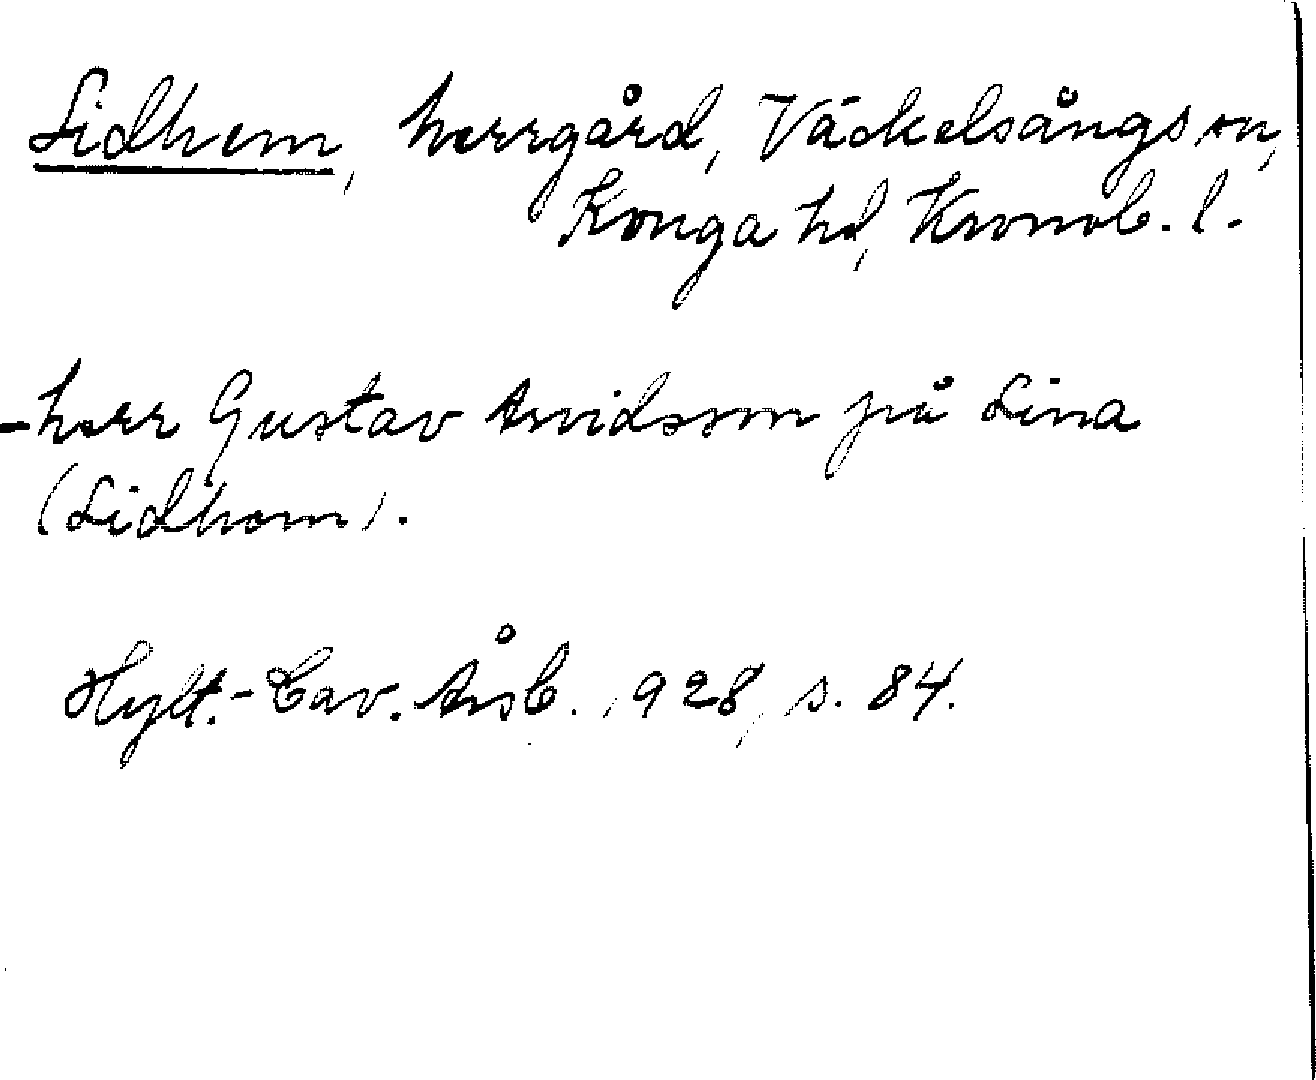 Lidhem, herrgård, Väckelsångs sn,
Konga hd, Kronob. l.
- herr Gustav Arvidsson på Lina
(Lidhem).
Hylt.-Cav. Årsb. 1928, s. 84.